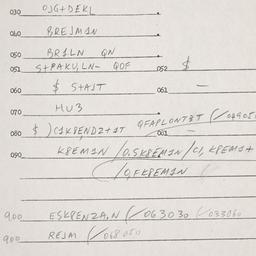 030 OJG+DEKL
040 BREJM1N
050 BR1LN QN
051 S+PAKU,LN- QOF 052 $
060 $ S+AJT 061 —
070 HU3
080 $ ) C1K8ENDZ+1T QFAPLONT8T (✓04905
090 K8EM1N /O,SK8EM1N /C1, K8EM1+
/O,FK8EM1N /
900 ESK8ENZA,N (✓063030 ✓033060
900 REJM (✓068050